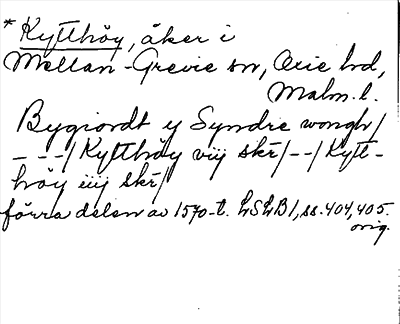 * Kyltthöy, åker i
Mellan-Grevie sn, Oxie hd,
Malm. l.
Bygiordt y Syndre wongh/
---/Kyltthöy viij skr/--/Kylt-
höy iiij skr/
förra delen av 1570-t. LSLB1, ss. 404, 405.
orig.